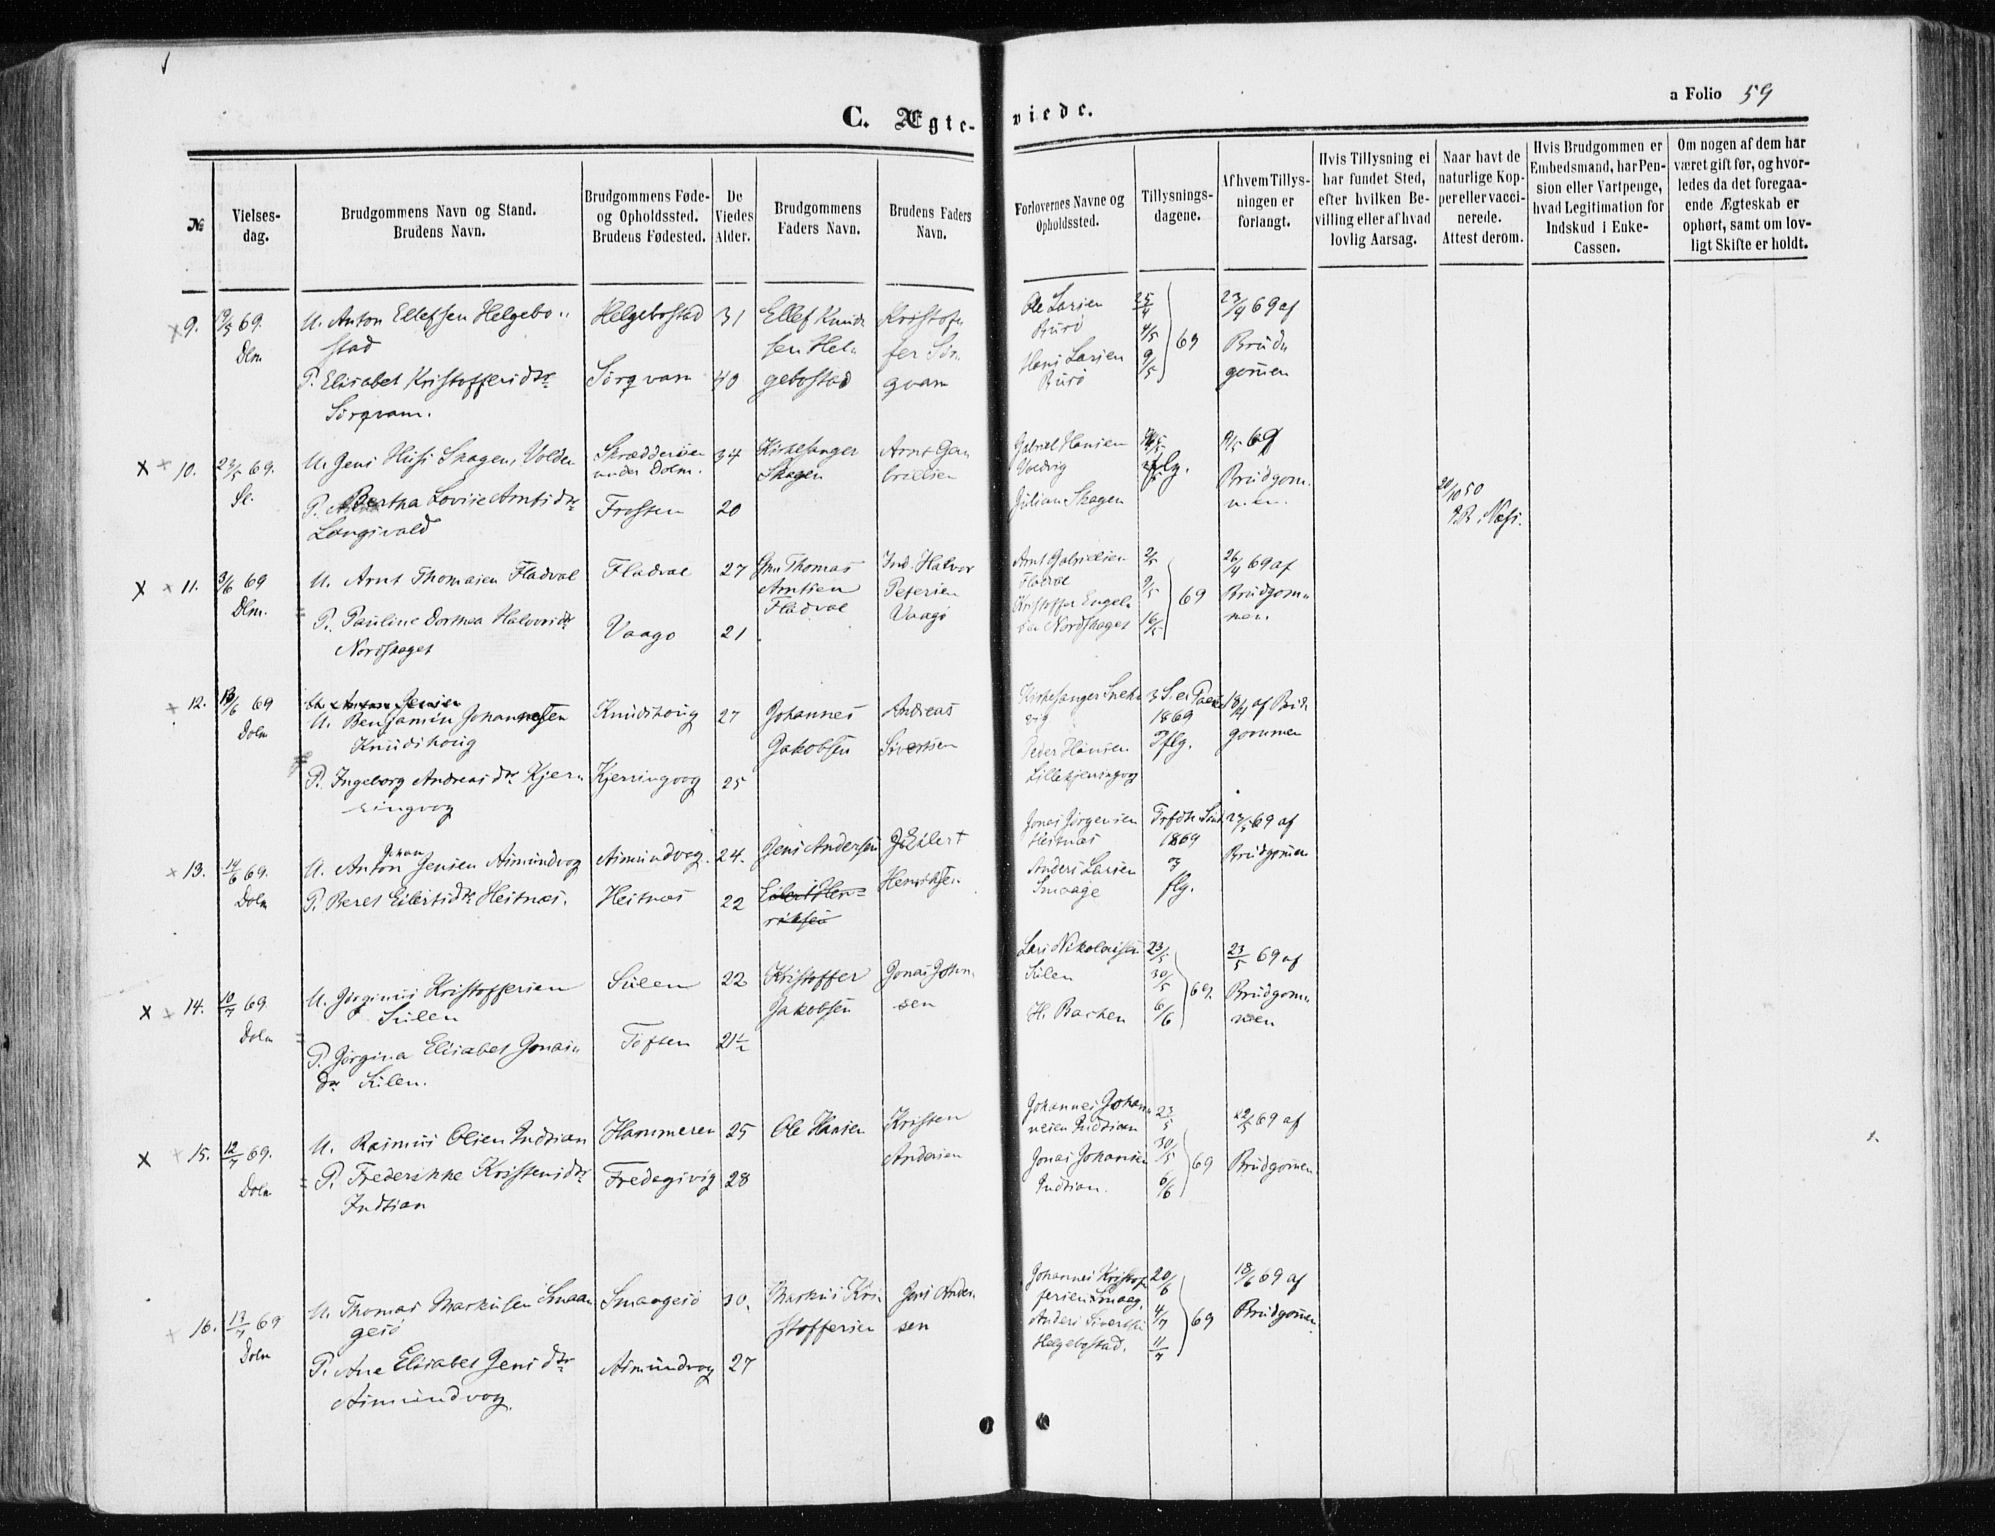 C. Ægte-viede.
a Folio 59
№
Vielses-dag.
Brudgommens Navn og Stand.
Brudens Navn.
Brudgommens Føde-
og Opholdssted.
Brudens Fødested.
De
Viedes
Alder.
Brudgommens
Faders Navn.
Brudens Faders
Navn.
Forlovernes Navne og
Opholdssted.
Tillysnings-
dagene.
Af hvem Tillys-
ningen er
forlangt.
Hvis Tillysning ei
har fundet Sted,
efter hvilken Be-
villing eller af hvad
lovlig Aarsag.
Naar havt de
naturlige Kop-
per eller vacci-
nerede.
Attest derom.
Hvis Brudgommen er
Embedsmand, har Pen-
sion eller Vartpenge,
hvad Legitimation for
Indskud i Enke-
Cassen.
Om nogen af dem har
været gift før, og hvor-
ledes da det foregaa-
ende Ægteskab er
ophørt, samt om lov-
ligt Skifte er holdt.
9. 69.
Dlm
U. Anton Ellefsen Helgebo-
stad
P. Elisabet Kristoffersdtr
Sørqvam.
Helgebostad
Sørqvam
31
40
Ellef Knud-
sen Hel-
gebostad
Kristof-
fer Sør-
qvam
Ole Larsen
Burø
Hans Larsen
Burø
25/4
4/5
9/5
69
23/4 69 af
Brud-
gommen
x x 10. 23/5 69.
Sl.
U. Jens Skagen, Volden
P. Beatha Lovise Arntsdtr
Langsvold
under Dolm.
Frosten
34
20
Kirkesanger
Skagen
Arnt Ga-
brielsen
Gabriel Hansen
Julian Skagen
flg.
69
Brudgom-
men.
20/10 50
x x 11. 3/6 69
Dlm.
U. Arnt Thomasen Fladval
P. Pauline Dorthea Halvorsdtr
Nordskaget
Fladval
Vaagø
27
21
Thomas
Arntsen
Fladval
Ind. Halvor
Petersen
Vaagø
Arnt Gabrielsen
Fladval
Kristoffer Engel-
sen Nordskaget
2/5
9/5
16/5
69
26/4 69 af
Brudgom-
men.
x 12. 13/6 69
Dolm
U. Benjamin Johannesen
Knudshoug
P. Ingeborg Andreasdtr Kjer-
ringvog
Knudshoug
Kjerringvog
27
25
Johannes
Jakobsen
Andreas
Sivertsen
Kirkesanger
Peder Hansen
Lillekjerringvog
1869
flg.
18/4 af Brud-
gommen
x 13. 14/6 69.
Dolm
U. Anton Johan Jensen Aimundvog
P. Beret Eilertsdtr Heitnæs.
Aimundvog.
Heitnæs
24.
22
Jens Andersen
Eilert Hen-
riksen
Eilert
Henriksen
Jonas Jørgensen
Heitnæs
Anders Larsen
Smaage
1869
flg.
69 af
Brudgommen
x x 14. 10/7 69
Dolm
U. Jørginus Kristoffersen
Sulen
P. Jørgina Elisabet Jonas-
dtr Sulen.
Sulen
Toften
22
21½
Kristoffer
Jakobsen
Jonas John-
sen
Lars Nikolaisen
Sulen
H. Bachen
23/5
30/5
6/6
69.
23/5 69 af
Brudgom-
men
x x 15. 12/7 69.
Dolm
U. Rasmus Olsen Indsian
P. Frederikke Kristensdtr
Indsian
Hammeren
Fredagsvig
25
28
Ole Hansen
Kristen
Andersen
Johannes Johan-
nesen Indsian
Jonas Johansen
Indsian.
23/5
30/5
6/6
69
22/5 69 af
Brudgommen.
x 16. 17/7 69
Dolm
U. Thomas Markusen Smaa-
gesø
P. Ane Elisabet Jensdtr
Aimundvog
Smaagesø
Aimundvog
30.
27
Markus Kri-
stoffersen
Jens Ander-
sen
Johannes Kristof-
fersen Smaag.
Anders Sivertsen
Helgebostad.
20/6
4/7
11/7
69
18/6 69 af
Brudgommen.